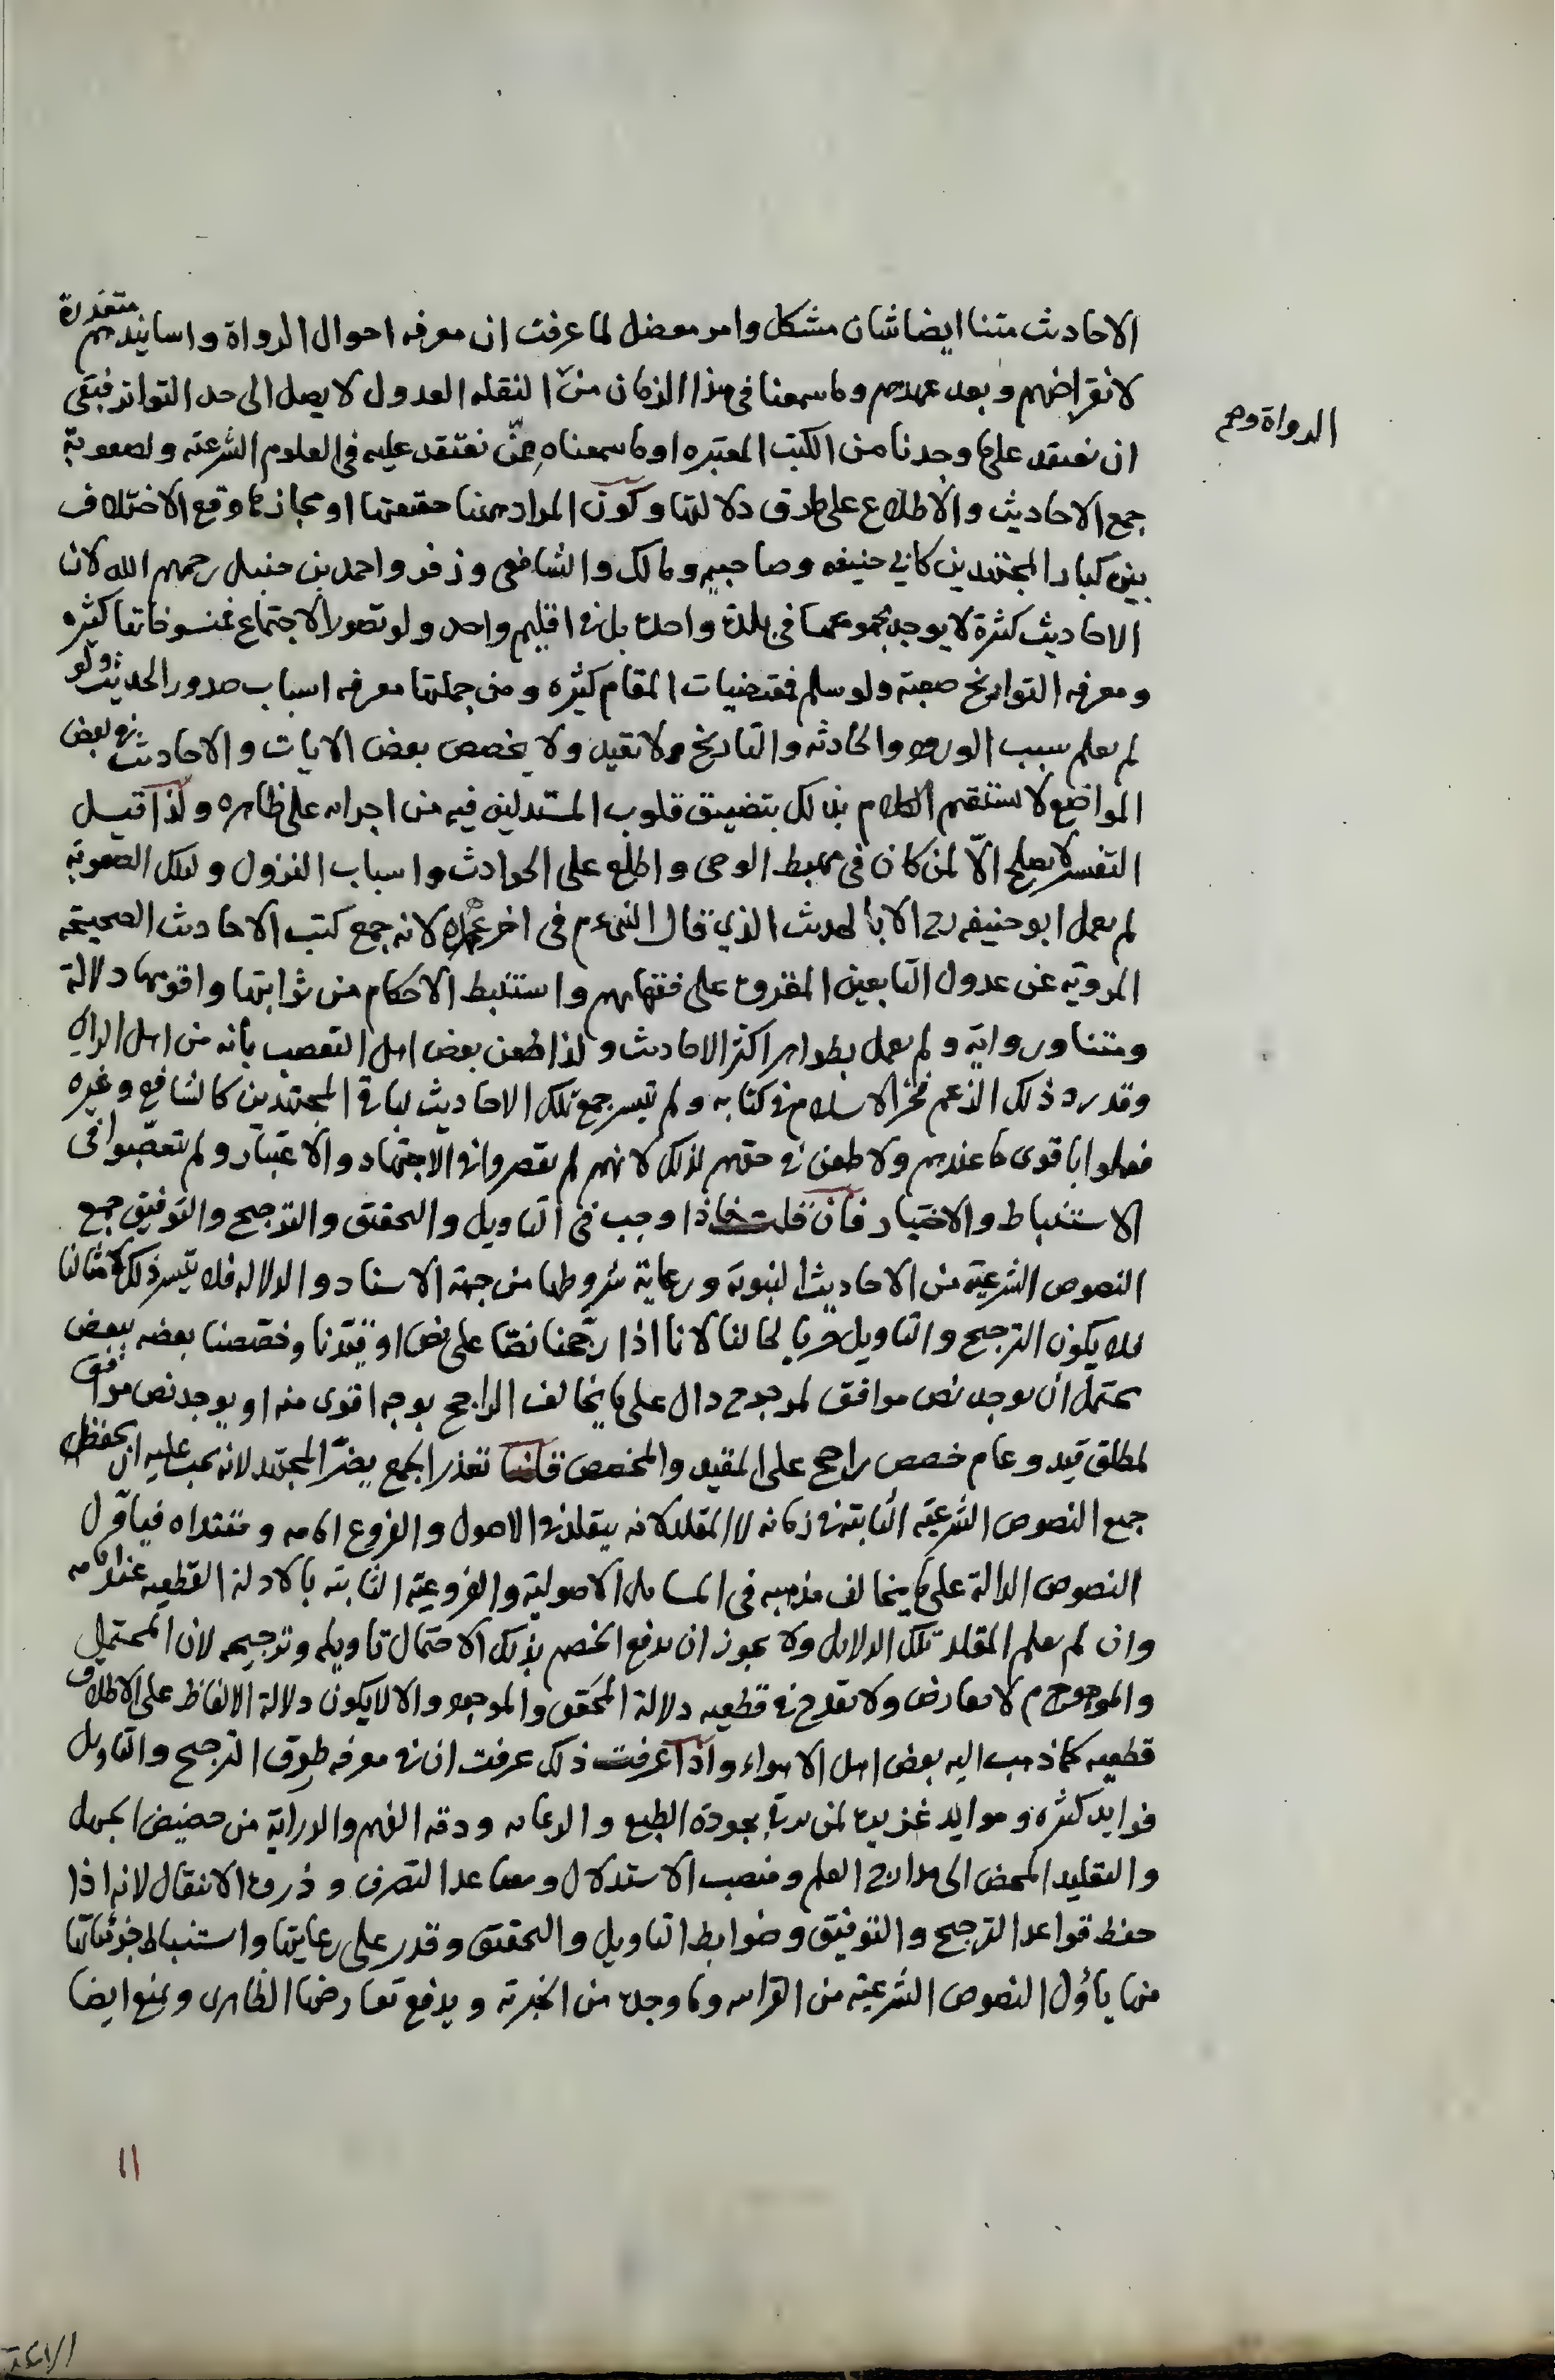 الاحاديث متنا ايضا شان مشكل وامر معضل لما عرفت ان معرفه احوال الرواة واسانيدهم متعذرة
لانقراضهم وبعد عهدهم وما سمعنا في هذا الزمان من النقله العدول لا يصل الى حد التواتر فبقى
الرواة وهم
ان نعتقد على ما وجدنا من الكتب المعتبره او ما سمعناه ممن نعتقد عليه في العلوم الشرعية ولصعوبة
جمع الاحاديث والاطلاع على طرق دلالتها وكون المراد منها حقيقتها او مجازها وقع الاختلاف
بين كبار المجتهدين كابي حنيفه وصاحبيه ومالك والشافعي وزفر واحمد بن حنبل رحمهم الله لان
الاحاديث كثيرة لا يوجد مجموعها في بلدة واحدة بل في اقليم واحد ولو تصور الاجتماع فمنسوخاتها كثيره
ومعرفه التواريخ صعبة ولو سلم فمقتضيات المقام كثيره ومن جملتها معرفه اسباب صدور الحديث ولو
لم يعلم سبب الورود والحادثه والتاريخ ولا تقيد ولا يخصص بعض الايات والاحاديث في بعض
المواضع لا يستقيم الكلام بذلك بتضييق قلوب المستدلين فيه من اجرائه على ظاهره ولذا قيل
التفسير لا يصلح الّا لمن كان في مهبط الوحى واطلع على الحوادث واسباب النزول ولتلك الصعوبة
لم يعمل ابو حنيفه رح الا بالحديث الذي قال النبي عم في اخر عمره لانه جمع كتب الاحاديث الصحيحة
المروية عن عدول التابعين المقروء على فقهائهم واستنبط الاحكام من ثوابتها واقويها دلالة
ومتنا ورواية ولم يعمل بظواهر اكثر الاحاديث ولذا طعن بعض اهل التعصب بانه من اهل الراي
وقد رد ذلك الزعم فخر الاسلام في كتابه ولم تيسر جمع تلك الاحاديث لباقي المجتهدين كالشافعي وغيره
فعملوا باقوى ما عندهم ولا طعن في حقهم لذلك لانهم لم يقصروا في الاجتهاد والاعتبار ولم يتعصبوا في
الاستنباط والاختيار فان قلت فاذا وجب في التاويل والتحقيق والترجيح والتوفيق جمع
النصوص الشرعية من الاحاديث النبوية ورعاية شروطها من جهة الاسناد والدلاله فلا تيسر ذلك لامثالنا
فلا يكون الترجيح والتاويل حريا لحالنا لانا اذا رجّحنا نصّا على نص او قيّدنا وخصّصنا بعضه ببعض
يحتمل ان يوجد نص موافق لمرجوح دال على ما يخالف الراجح بوجه اقوى منه او يوجد نص موافق
لمطلق قيد وعام خصص راجح على المقيد والمخصص قلنا تعذر الجمع يضرّ المجتهد لانه يجب عليه ان يحفظ
جميع النصوص الشرعيّه الثابتة في زمانه لا المقلد لانه يقلد في الاصول والفروع امامه ومقتداه فياوّل
النصوص الدالة على ما يخالف مذهبه في المسايل الاصولية والفروعية الثابته بالادلة القطعيه عند امامه
وان لم يعلم المقلد تلك الدلايل ولا يجوز ان يدفع الخصم بذلك الاحتمال تاويله وترجيحه لان المحتمل
والموهوم لا يعارض ولا يقدح في قطعيه دلالة المحقق والموجود والا لا يكون دلالة الالفاظ على الاطلاق
قطعيه كما ذهب اليه بعض اهل الاهواء واذا عرفت ذلك عرفت ان في معرفه طرق الترجيح والتاويل
فوايد كثيره وموايد غزيرة لمن بجودة الطبع و ودقه الفهم والدراية من حضيض الجهل
والتقليد المحض الى مدارج العلم ومنصب الاستدلال ومصاعد التصرف وذروة الانتقال لانه اذا
حفظ قواعد الترجيح والتوفيق وضوابط التاويل والتحقيق وقدر على رعايتها واستنباط جزئياتها
منها يأوّل النصوص الشرعيّه من القرانيه وما وجده من الخبريه ويدفع تعارضها الظاهرى ويمنع ايضا
١١